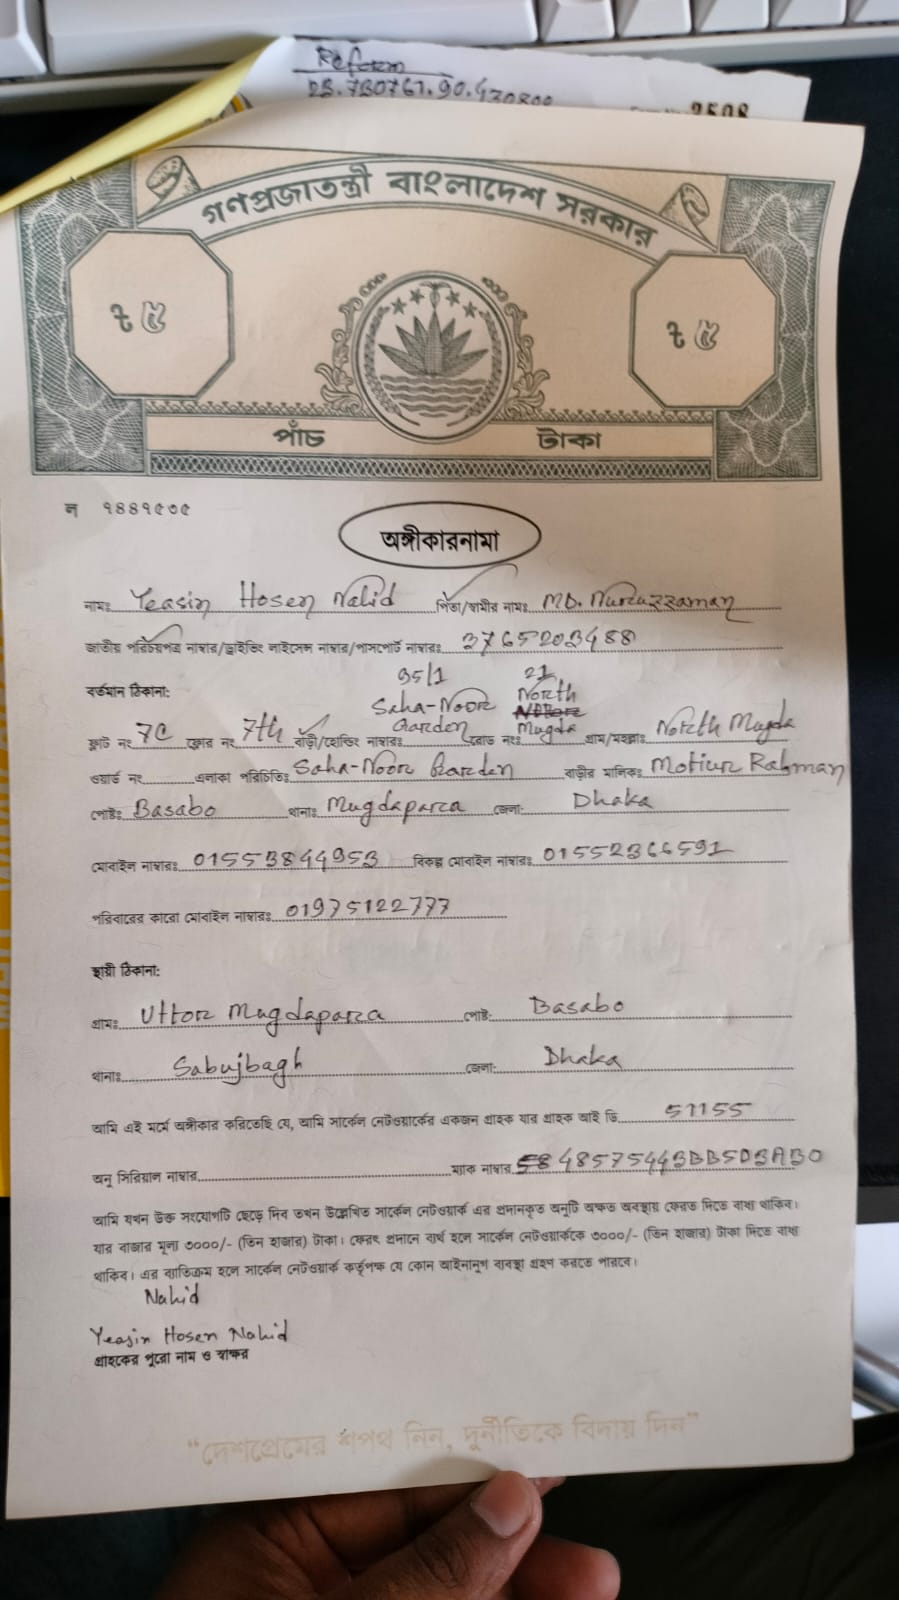 Reform
গণপ্রজাতন্ত্রী বাংলাদেশ সরকার
৳ ৫ ৳ ৫
পাঁচ টাকা
ন ৭৪৪৭৫৩৫
অঙ্গীকারনামা
নামঃ Yeasin Hosen Nahid পিতা/স্বামীর নামঃ MD. Nuruzzaman
জাতীয় পরিচয়পত্র নাম্বার/ড্রাইভিং লাইসেন্স নাম্বার/পাসপোর্ট নাম্বারঃ 3765203488
বর্তমান ঠিকানা: 35/1 21
Saha-Noor North
ফ্লাট নং 7C ফ্লোর নং 7th বাড়ী/হোল্ডিং নাম্বারঃ Garden রোড নং Mugda গ্রাম/মহল্লাঃ North Mugda
ওয়ার্ড নং এলাকা পরিচিতিঃ Saha-Noor Garden বাড়ীর মালিকঃ Motiur Rahman
পোষ্টঃ Basabo থানাঃ Mugdapara জেলা: Dhaka
মোবাইল নাম্বারঃ 01553844953 বিকল্প মোবাইল নাম্বারঃ 01552366591
পরিবারের কারো মোবাইল নাম্বারঃ 01975122777
স্থায়ী ঠিকানা:
গ্রামঃ Uttor Mugdapara পোষ্ট: Basabo
থানাঃ Sabujbagh জেলা: Dhaka
আমি এই মর্মে অঙ্গীকার করিতেছি যে, আমি সার্কেল নেটওয়ার্কের একজন গ্রাহক যার গ্রাহক আই ডি 51155
অনু সিরিয়াল নাম্বার ম্যাক নাম্বার 848575443BB5D3AB0
আমি যখন উক্ত সংযোগটি ছেড়ে দিব তখন উল্লেখিত সার্কেল নেটওয়ার্ক এর প্রদানকৃত অনুটি অক্ষত অবস্থায় ফেরত দিতে বাধ্য থাকিব।
যার বাজার মূল্য ৩০০০/- (তিন হাজার) টাকা। ফেরৎ প্রদানে ব্যর্থ হলে সার্কেল নেটওয়ার্ককে ৩০০০/- (তিন হাজার) টাকা দিতে বাধ্য
থাকিব। এর ব্যতিক্রম হলে সার্কেল নেটওয়ার্ক কর্তৃপক্ষ যে কোন আইনানুগ ব্যবস্থা গ্রহণ করতে পারবে।
Nahid
Yeasin Hosen Nahid
গ্রাহকের পুরো নাম ও স্বাক্ষর
“দেশপ্রেমের শপথ নিন, দুর্নীতিকে বিদায় দিন”